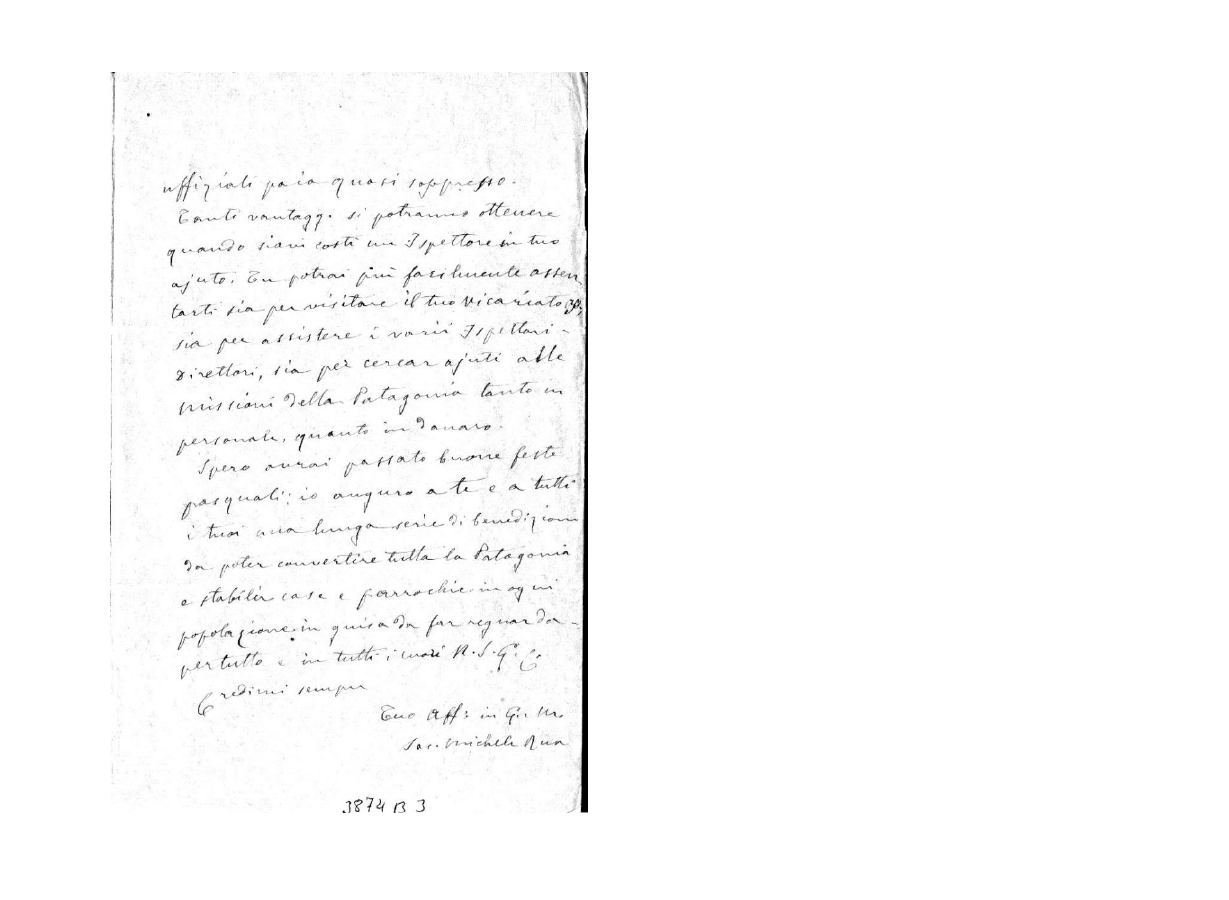 uffiziali paia quasi soppresso.
Tanti vantaggi si potranno ottenere
quando siavi costì un Ispettore in tuo
ajuto. Tu potrai più facilmente assen
tarti sia per visitare il tuo Vicariato
sia per assistere i varii Ispettori-
Direttori, sia per cercar ajuti alle
missioni della Patagonia tanto in
personale, quanto in danaro.
Spero avrai passato buone feste
pasquali: io auguro a te e a tutti
i tuoi una lunga serie di benedizioni
da poter convertire tutta la Patagonia
e stabilir case e parrochie in ogni
popolazione in guisa da far regnar da-
pertutto e in tutti i cuori N. S. G. C.
Credimi sempre
Tuo Aff: in G. e M.
Sac. Michele Rua
3874 B 3